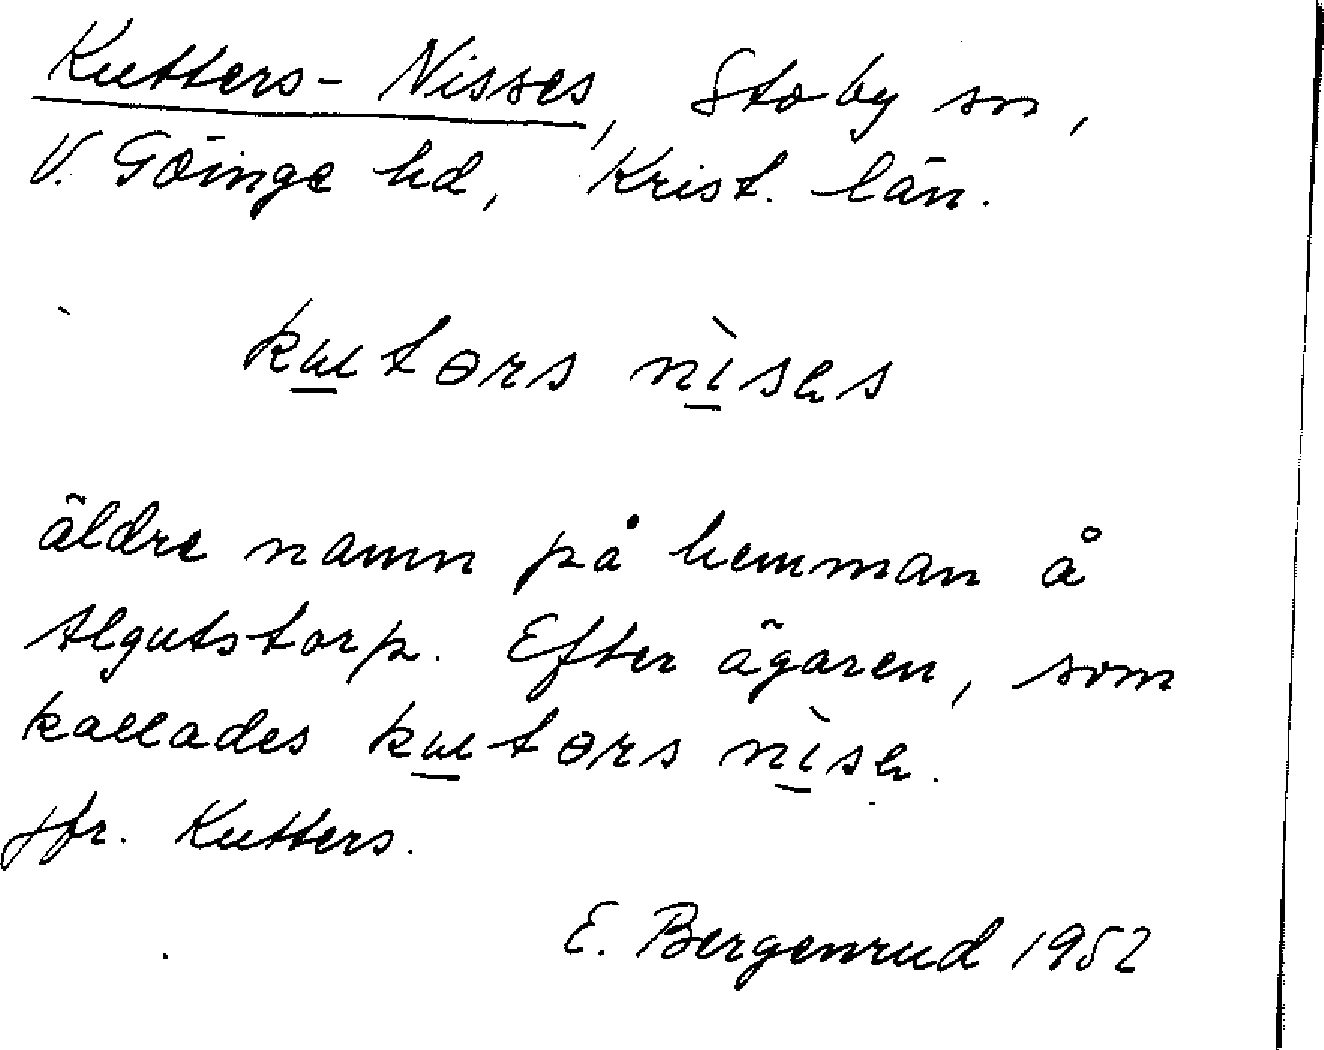 Kutters-Nisses, Stoby sn,
V. Göinge hd, Krist. län.
kutərs nìsəs
äldre namn på hemman å
Algutstorp. Efter ägaren, som
kallades kutərs nìsə.
Jfr. Kutters.
E. Bergenrud 1952